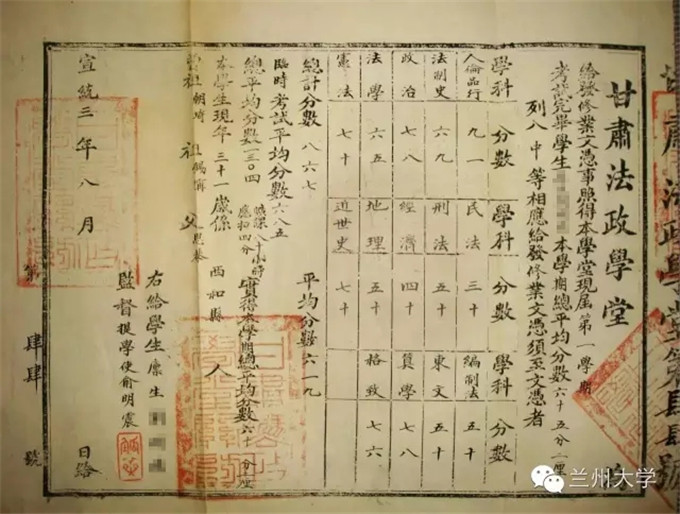 甘肅法政學堂
給發修業文憑事照得本學堂現屆第一學期
考試完畢學生
本學期總平均分數六十五分一厘
列入中等相應給發修業文憑須至文憑者
學科 分數 學科 分數 學科 分數
人倫品行 九一 民法 三十 編制法 五十
法制史 六九 刑法 五十 東文 五十
政治 七八 經濟 四十 算學 七八
法學 六五 地理 五十 格致 七六
憲法 七十 近世史 七十
總計分數 八六七 平均分數 六一九
臨時考試平均分數六八五
總平均分數一三〇四
曠課八十小時
應扣四分
實得本學期總平均分數六十分厘
本學生現年三十一歲係西和縣人
曾祖朝 祖賜 父
右給學生廩生
監督提學使俞明震
宣統三年八月 日給
第肆肆號
肅法政學堂第肆肆號
兰州大学